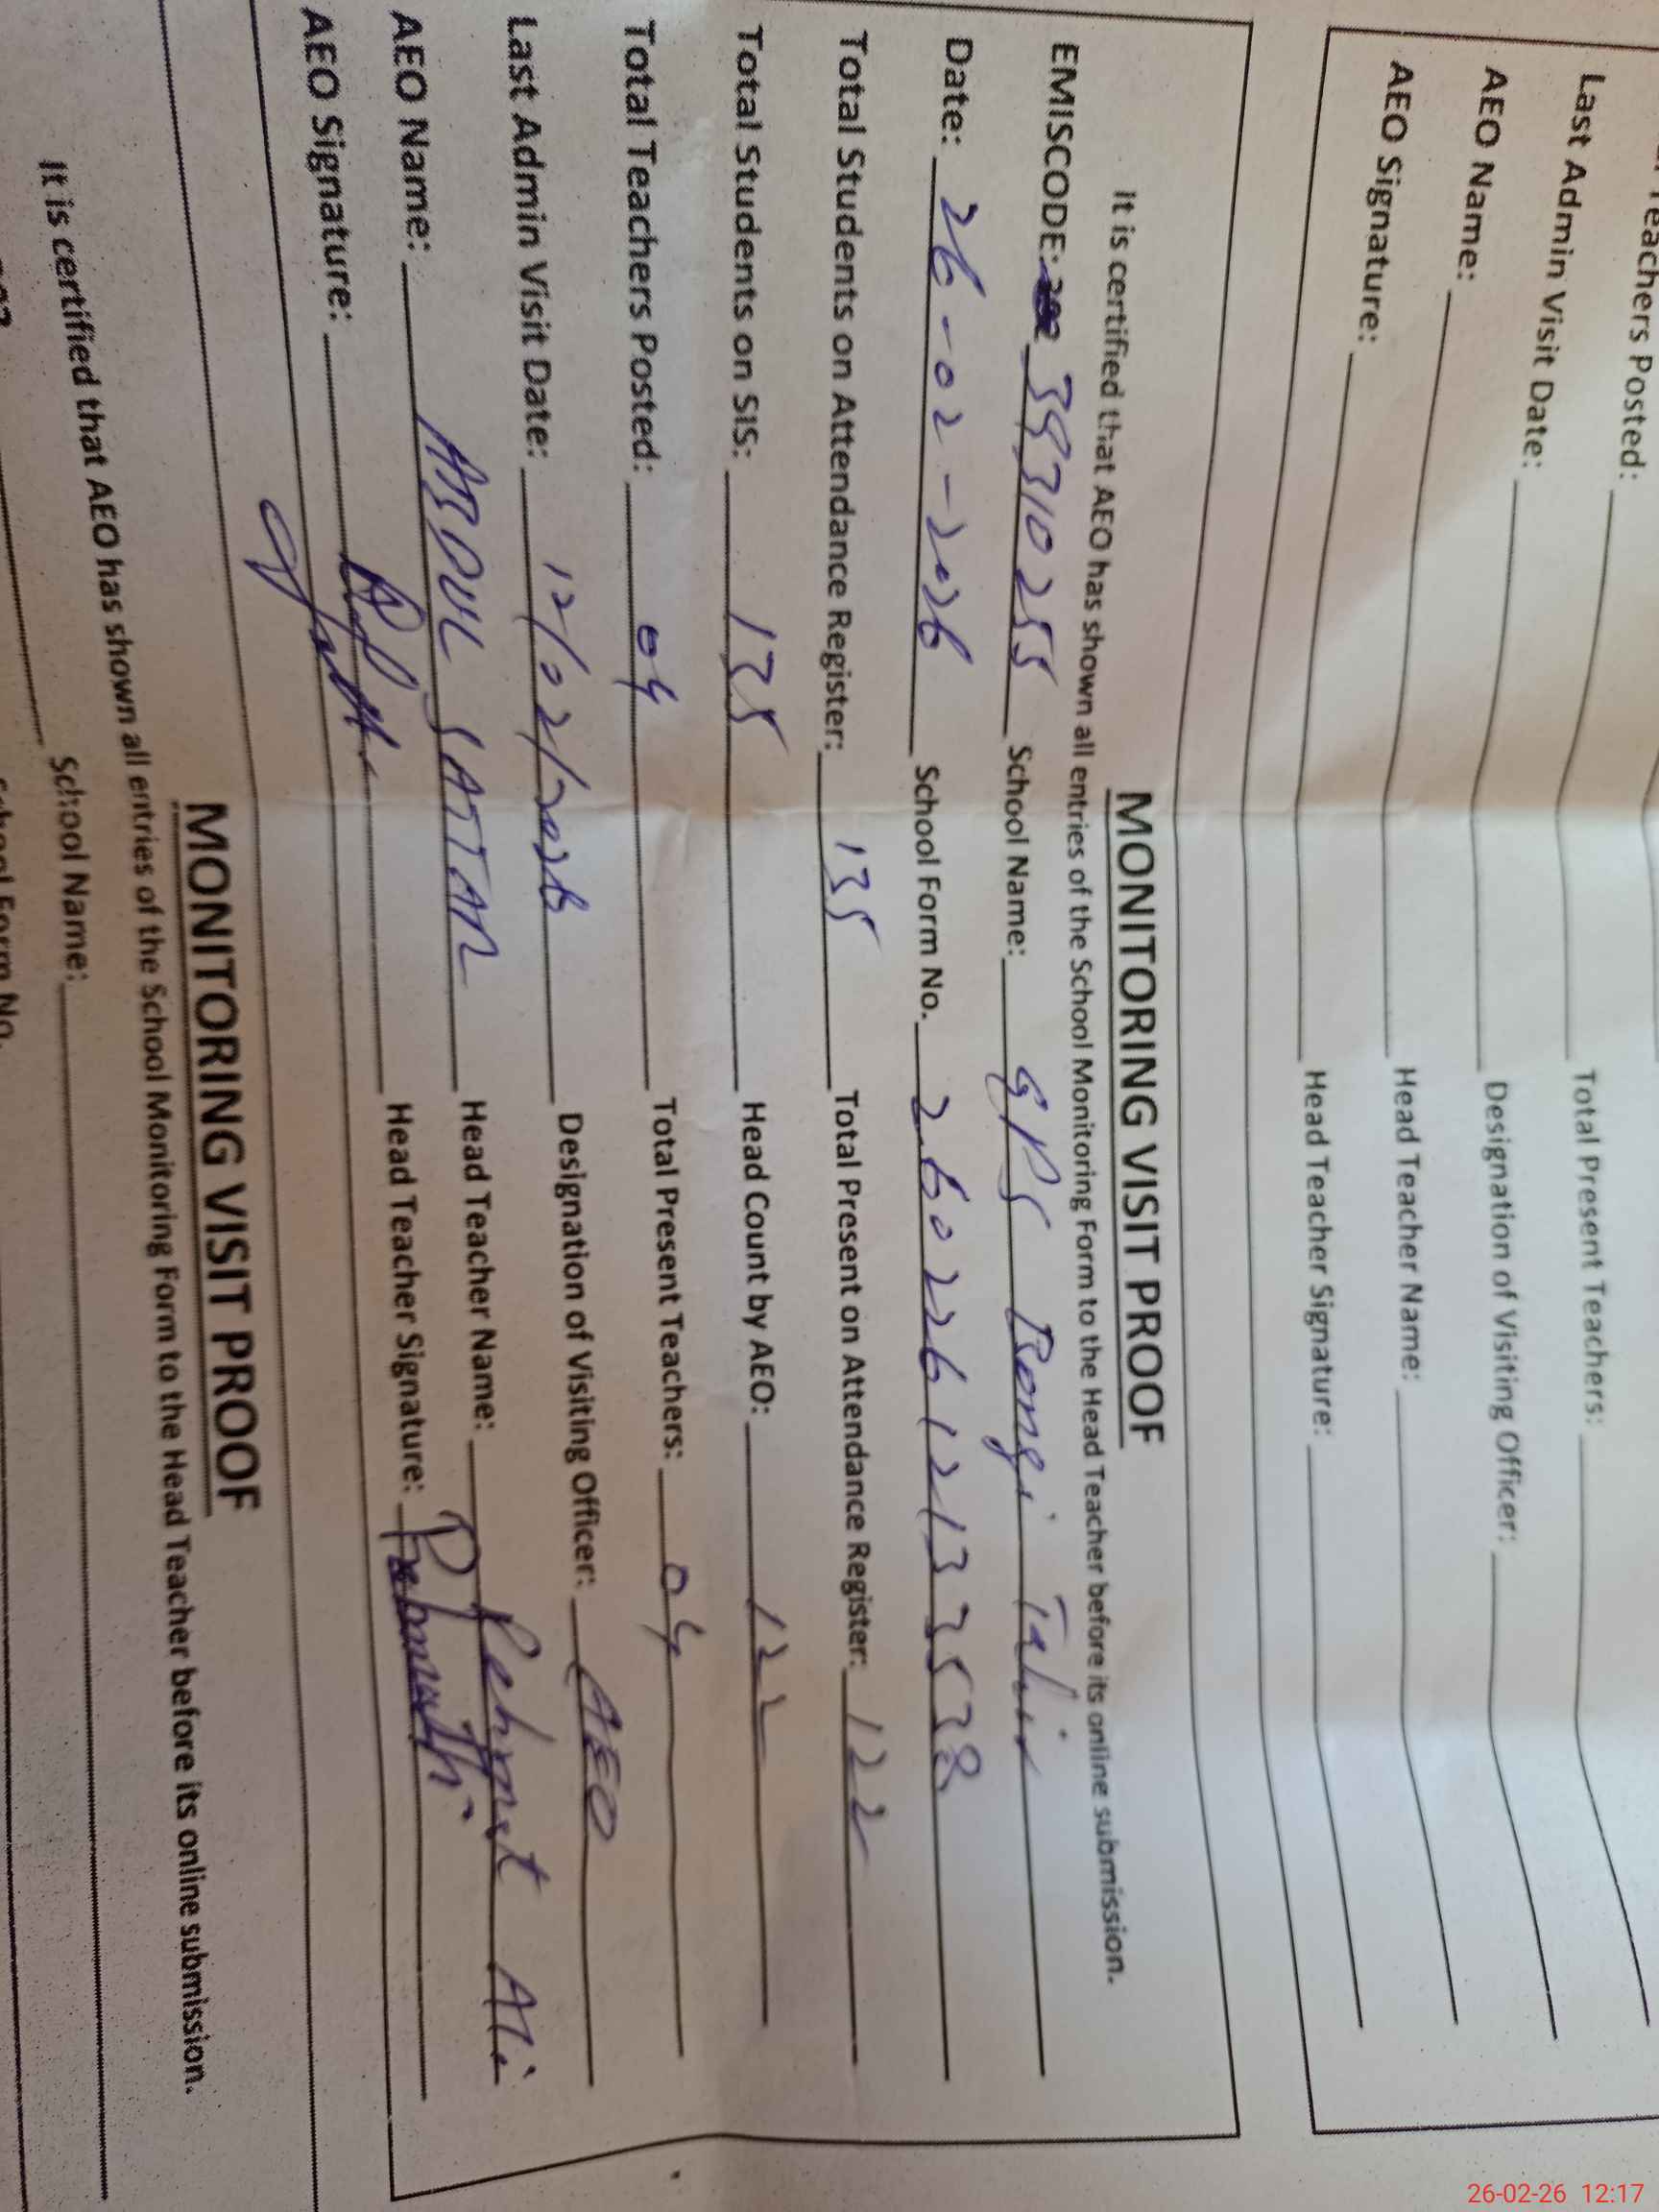 Teachers Posted: Total Present Teachers:
Last Admin Visit Date: Designation of Visiting Officer:
AEO Name: Head Teacher Name:
AEO Signature: Head Teacher Signature:
MONITORING VISIT PROOF
It is certified that AEO has shown all entries of the School Monitoring Form to the Head Teacher before its online submission.
EMISCODE: 39310255 School Name: GPS Rongi Tahir
Date: 26-02-2026 School Form No. 26022612133538
Total Students on Attendance Register: 135 Total Present on Attendance Register: 122
Total Students on SIS: 135 Head Count by AEO: 122
Total Teachers Posted: 04 Total Present Teachers: 04
Last Admin Visit Date: 12/02/2026 Designation of Visiting Officer: AEO
AEO Name: ABDUL SATTAR Head Teacher Name: Rehmat Ali
AEO Signature: Head Teacher Signature:
MONITORING VISIT PROOF
It is certified that AEO has shown all entries of the School Monitoring Form to the Head Teacher before its online submission.
School Name:
School Form No.
26-02-26 12:17